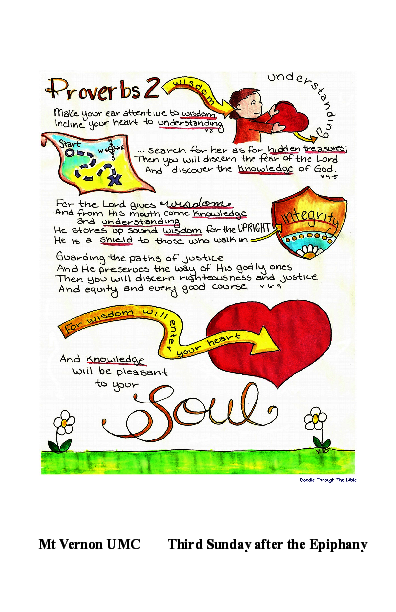 Proverbs 2
wisdom
understanding
Make your ear attentive to wisdom
Incline your heart to understanding
v2
Start
... search for her as for hidden treasures;
Then you will discern the fear of the Lord
And discover the knowledge of God.
v4-5
For the Lord gives wisdom
And from His mouth come knowledge
and understanding
He stores up sound wisdom for the UPRIGHT
He is a shield to those who walk in
integrity
Guarding the paths of justice
And He preserves the way of His godly ones
Then you will discern righteousness and justice
And equity and every good course v6-9
For wisdom will enter your heart
And knowledge
will be pleasant
to your
Soul
Doodle Through The Bible
Mt Vernon UMC Third Sunday after the Epiphany